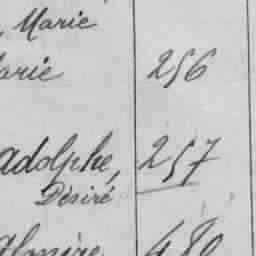 , Marie
arie 256
adolphe, 257
Désiré
480